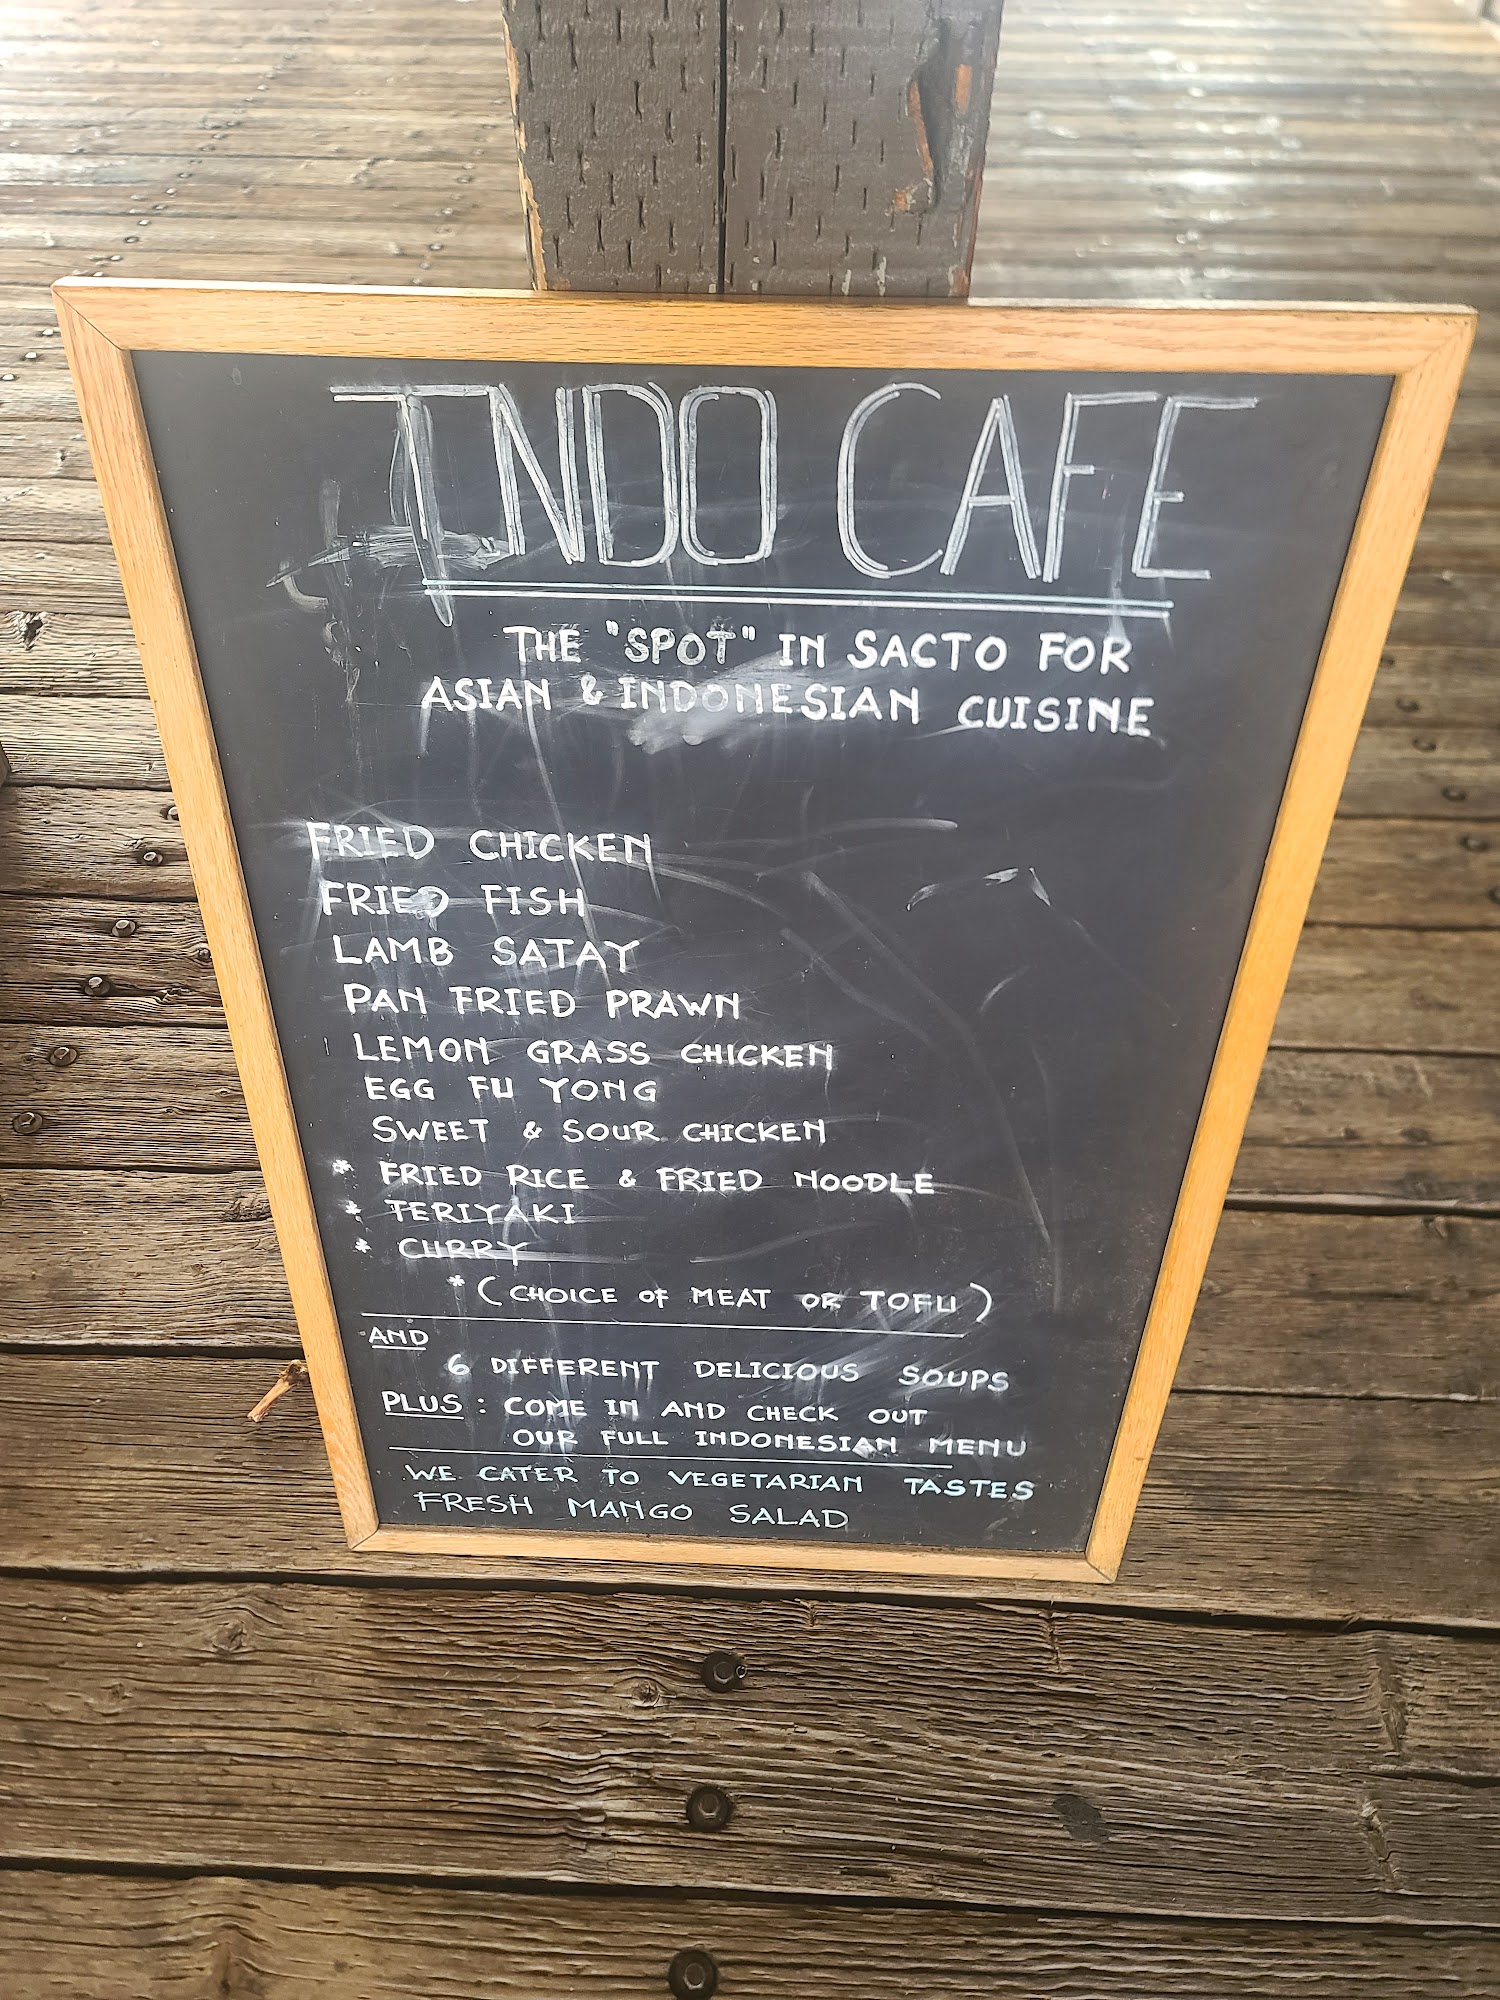 INDO CAFE
THE "SPOT" IN SACTO FOR
ASIAN & INDONESIAN CUISINE
FRIED CHICKEN
FRIED FISH
LAMB SATAY
PAN FRIED PRAWN
LEMON GRASS CHICKEN
EGG FU YONG
SWEET & SOUR CHICKEN
* FRIED RICE & FRIED NOODLE
* TERIYAKI
* CURRY
*(CHOICE OF MEAT OR TOFU)
AND
6 DIFFERENT DELICIOUS SOUPS
PLUS: COME IN AND CHECK OUT
OUR FULL INDONESIAN MENU
WE CATER TO VEGETARIAN TASTES
FRESH MANGO SALAD